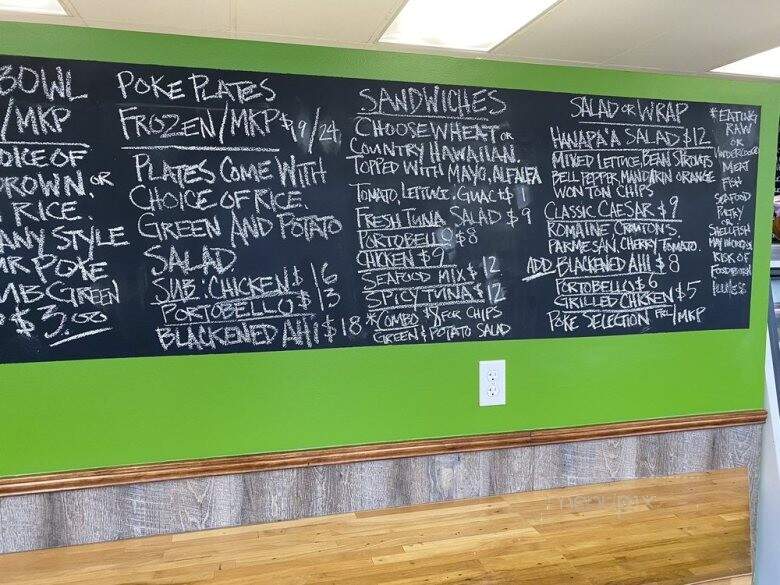 BOWL
/MKP
OICE OF
ROWN OR
RICE.
ANY STYLE
POKE
GREEN
$3.00
POKE PLATES
FROZEN/MKP $19/24
PLATES COME WITH
CHOICE OF RICE.
GREEN AND POTATO
SALAD.
SUB: CHICKEN $16
PORTOBELLO $13
BLACKENED AHI $18
SANDWICHES
CHOOSE WHEAT OR
COUNTRY HAWAIIAN.
TOPPED WITH MAYO, ALFALFA
TOMATO, LETTUCE. GUAC +$1
FRESH TUNA SALAD $9
PORTOBELLO $8
CHICKEN $9
SEAFOOD MIX $12
SPICY TUNA $12
*COMBO $ FOR CHIPS
GREEN & POTATO SALAD
SALAD OR WRAP
HANAPA'A SALAD $12
MIXED LETTUCE, BEAN SPROUTS
BELL PEPPER, MANDARIN ORANGE
WON TON CHIPS
CLASSIC CAESAR $9
ROMAINE, CROUTONS,
PARMESAN, CHERRY TOMATO.
ADD BLACKENED AHI $8
PORTOBELLO $6
GRILLED CHICKEN $5
POKE SELECTION /MKP
*EATING
RAW
OR
UNDERCOOKED
MEAT
FISH
SEAFOOD
SHELLFISH
RISK OF
FOODBORNE
ILLNESS
menupix